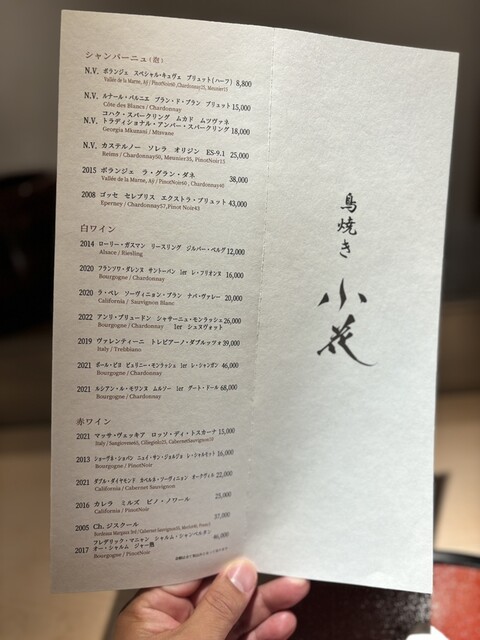 シャンパーニュ(泡)
N.V. ボランジェ スペシャル・キュヴェ ブリュット(ハーフ) 8,800
Vallée de la Marne, Aÿ / PinotNoir60, Chardonnay25, Meunier15
N.V. ルナール・バルニエ ブラン・ド・ブラン ブリュット 15,000
Côte des Blancs / Chardonnay
コハク・スパークリング ムカド ムツヴァネ
N.V. トラディショナル・アンバー・スパークリング 18,000
Georgia Mkanani / Mtsvane
N.V. カステルノー ソレラ オリジン ES-9.1 25,000
Reims / Chardonnay50, Meunier35, PinotNoir15
2015 ボランジェ ラ・グラン・ダネ 38,000
Vallée de la Marne, Aÿ / PinotNoir60, Chardonnay40
2008 ゴッセ セレブリス エクストラ・ブリュット 43,000
Eperney / Chardonnay57, Pinot Noir43
白ワイン
2014 ローリー・ガスマン リースリング ジルバー・ベルグ 12,000
Alsace / Riesling
2020 フランソワ・ダレンヌ サントーバン 1er レ・フリオンヌ 16,000
Bourgogne / Chardonnay
2020 ラ・ペレ ソーヴィニョン・ブラン ナパ・ヴァレー 20,000
California / Sauvignon Blanc
2022 アンリ・プリュードン シャサーニュ・モンラッシェ 26,000
Bourgogne / Chardonnay 1er シュヌヴォット
2019 ヴァレンティーニ トレビアーノ・ダブルッツォ 39,000
Italy / Trebbiano
2021 ポール・ピヨ ピュリニー・モンラッシェ 1er レ・シャンガン 46,000
Bourgogne / Chardonnay
2021 ルシアン・ル・モワンヌ ムルソー 1er グート・ドール 68,000
Bourgogne / Chardonnay
赤ワイン
2021 マッサ・ヴェッキア ロッソ・ディ・トスカーナ 15,000
Italy / Sangiovese
2013 ショーヴネ・ショパン ニュイ・サン・ジョルジュ レ・シャルモット 16,000
Bourgogne / PinotNoir
2021 ダブル・ダイヤモンド カベルネ・ソーヴィニョン オークヴィル 22,000
California / Cabernet Sauvignon
2016 カレラ ミルズ ピノ・ノワール 23,000
California / PinotNoir
2005 Ch. ジスクール 37,000
Bordeaux Margaux
フレデリック・マニャン シャルム・シャンベルタン
2017 オー・シャルム ジャー熟 46,000
Bourgogne / PinotNoir
鳥焼き
小花